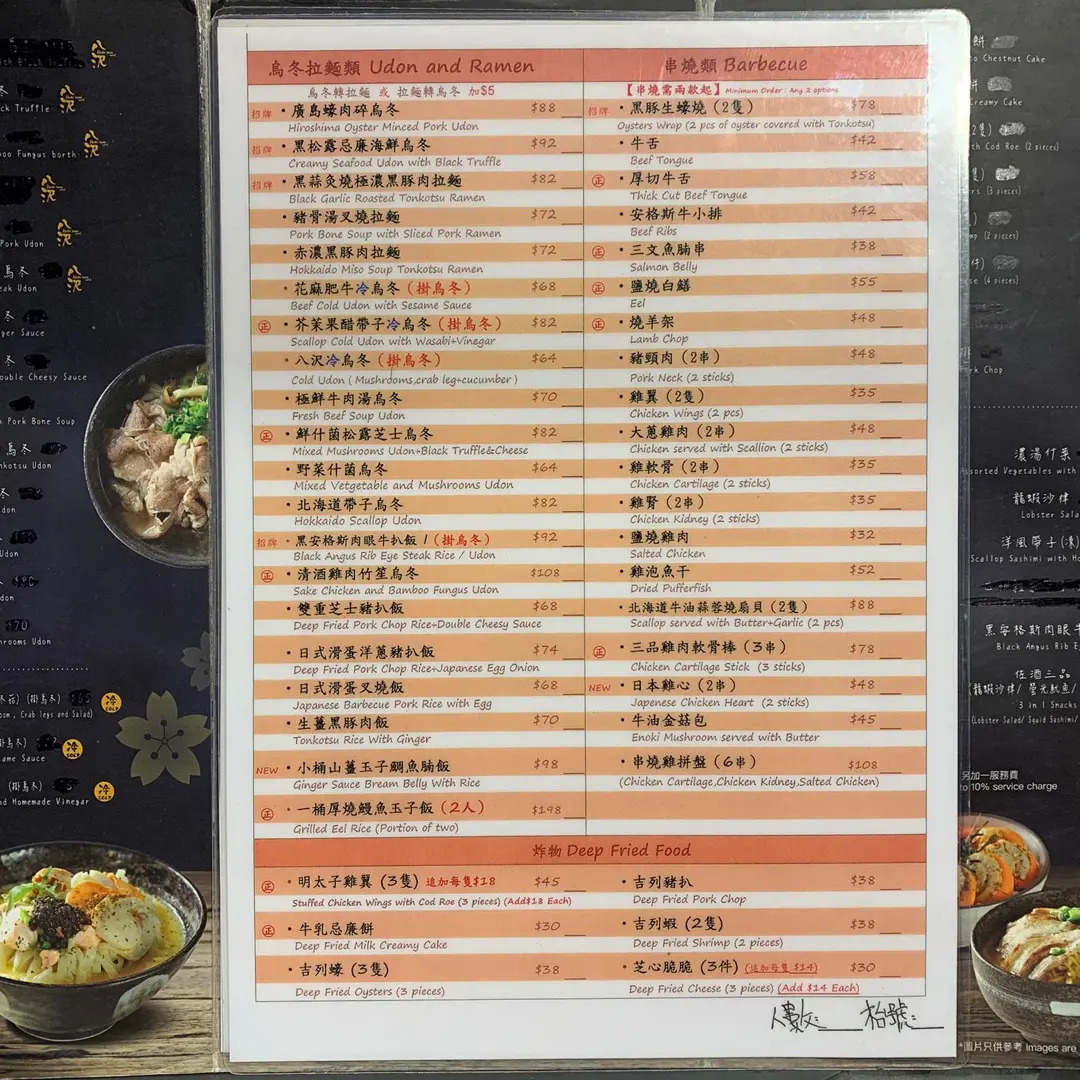 烏冬拉麵類 Udon and Ramen
烏冬轉拉麵 或 拉麵轉烏冬 加$5
招牌 · 廣島蠔肉碎烏冬 $88
Hiroshima Oyster Minced Pork Udon
招牌 · 黑松露忌廉海鮮烏冬 $92
Creamy Seafood Udon with Black Truffle
招牌 · 黑蒜灸燒極濃黑豚肉拉麵 $82
Black Garlic Roasted Tonkotsu Ramen
· 豬骨湯叉燒拉麵 $72
Pork Bone Soup with Sliced Pork Ramen
· 赤濃黑豚肉拉麵 $72
Hokkaido Miso Soup Tonkotsu Ramen
· 花麻肥牛冷烏冬(掛烏冬) $68
Beef Cold Udon with Sesame Sauce
正 · 芥茉果醋帶子冷烏冬(掛烏冬) $82
Scallop Cold Udon with Wasabi+Vinegar
· 八沢冷烏冬(掛烏冬) $64
Cold Udon ( Mushrooms,crab leg+cucumber )
· 極鮮牛肉湯烏冬 $70
Fresh Beef Soup Udon
正 · 鮮什菌松露芝士烏冬 $82
Mixed Mushrooms Udon+Black Truffle&Cheese
· 野菜什菌烏冬 $64
Mixed Vetgetable and Mushrooms Udon
· 北海道帶子烏冬 $82
Hokkaido Scallop Udon
招牌 · 黑安格斯肉眼牛扒飯 / (掛烏冬) $92
Black Angus Rib Eye Steak Rice / Udon
正 · 清酒雞肉竹笙烏冬 $108
Sake Chicken and Bamboo Fungus Udon
· 雙重芝士豬扒飯 $68
Deep Fried Pork Chop Rice+Double Cheesy Sauce
· 日式滑蛋洋蔥豬扒飯 $74
Deep Fried Pork Chop Rice+Japanese Egg Onion
· 日式滑蛋叉燒飯 $68
Japanese Barbecue Pork Rice with Egg
· 生薑黑豚肉飯 $70
Tonkotsu Rice With Ginger
NEW · 小桶山薑玉子鯛魚腩飯 $98
Ginger Sauce Bream Belly With Rice
正 · 一桶厚燒鰻魚玉子飯(2人) $198
Grilled Eel Rice (Portion of two)
串燒類 Barbecue
【串燒需兩款起】Minimum Order : Any 2 options
招牌 · 黑豚生蠔燒 (2隻) $78
Oysters Wrap (2 pcs of oyster covered with Tonkotsu)
· 牛舌 $42
Beef Tongue
正 · 厚切牛舌 $58
Thick Cut Beef Tongue
· 安格斯牛小排 $42
Beef Ribs
正 · 三文魚腩串 $38
Salmon Belly
正 · 鹽燒白鱔 $55
Eel
正 · 燒羊架 $48
Lamb Chop
· 豬頸肉 (2串) $48
Pork Neck (2 sticks)
· 雞翼 (2隻) $35
Chicken Wings (2 pcs)
· 大蔥雞肉 (2串) $48
Chicken served with Scallion (2 sticks)
· 雞軟骨 (2串) $35
Chicken Cartilage (2 sticks)
· 雞腎 (2串) $35
Chicken Kidney (2 sticks)
· 鹽燒雞肉 $32
Salted Chicken
· 雞泡魚干 $52
Dried Pufferfish
· 北海道牛油蒜蓉燒扇貝 (2隻) $88
Scallop served with Butter+Garlic (2 pcs)
正 · 三品雞肉軟骨棒 (3串) $78
Chicken Cartilage Stick (3 sticks)
NEW · 日本雞心 (2串) $48
Japenese Chicken Heart (2 sticks)
· 牛油金菇包 $45
Enoki Mushroom served with Butter
· 串燒雞拼盤 (6串) $108
(Chicken Cartilage,Chicken Kidney,Salted Chicken)
炸物 Deep Fried Food
正 · 明太子雞翼 (3隻) 追加每隻$18 $45
Stuffed Chicken Wings with Cod Roe (3 pieces) (Add$18 Each)
正 · 牛乳忌廉餅 $30
Deep Fried Milk Creamy Cake
· 吉列蠔 (3隻) $38
Deep Fried Oysters (3 pieces)
· 吉列豬扒 $38
Deep Fried Pork Chop
· 吉列蝦 (2隻) $38
Deep Fried Shrimp (2 pieces)
· 芝心脆脆 (3件) (追加每隻 $14) $30
Deep Fried Cheese (3 pieces) (Add $14 Each)
人數: 枱號:
ck Truffle
oo Fungus borth
Pork Udon
烏冬
eak Udon
ger Sauce
ouble Cheesy Sauce
Pork Bone Soup
烏冬
nkotsu Udon
Udon
rooms Udon
(掛烏冬)
oom , Crab legs and Salad)
冷
COLD
掛烏冬)
ame Sauce
冷
COLD
(掛烏冬)
nd Homemade Vinegar
冷
COLD
餅
to Chestnut Cake
餅
reamy Cake
2隻)
th Cod Roe (2 pieces)
(3 pieces)
(2 pieces)
(4 pieces)
rk Chop
濃湯什菜
Assorted Vegetables with
龍蝦沙律
Lobster Sala
洋風帶子(凍)
Scallop Sashimi with Ho
黑安格斯肉眼牛
Black Angus Rib E
佐酒三品
(龍蝦沙律/ 螢光魷魚/
3 in 1 Snacks
(Lobster Salad/ Squid Sashimi/
另加一服務費
to 10% service charge
*圖片只供參考 Images are